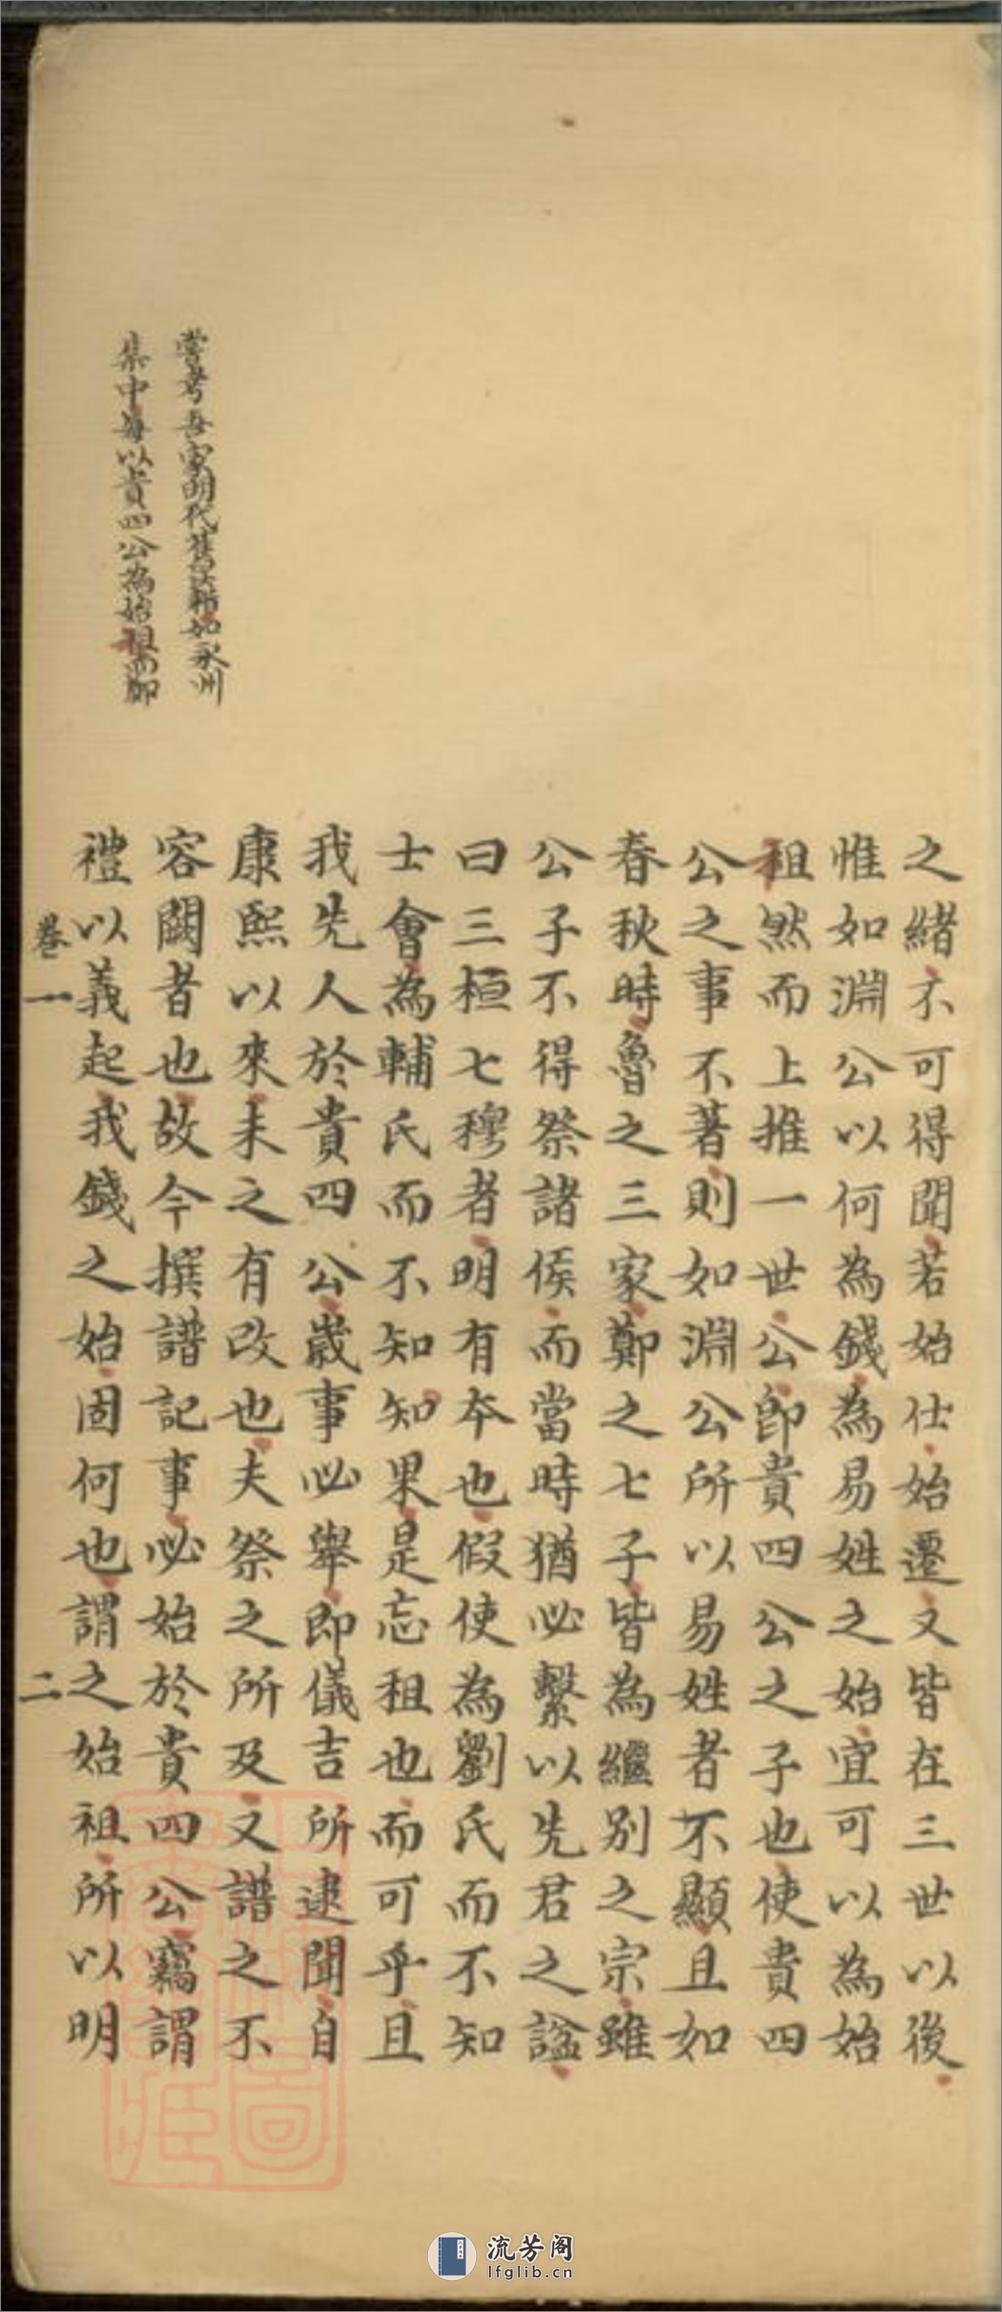 之緒不可得聞若始仕始遷又皆在三世以後
惟如淵公以何為錢為易姓之始宜可以為始
祖然而上推一世公即貴四公之子也使貴四
公之事不著則如淵公所以易姓者不顯且如
春秋時魯之三家鄭之七子皆為繼別之宗雖
公子不得祭諸侯而當時猶必繫以先君之諡
曰三桓七穆者明有本也假使為劉氏而不知
士會為輔氏而不知知果是忘祖也而可乎且
我先人於貴四公歲事必舉即儀吉所逮聞自
康熙以來未之有改也夫祭之所及文譜之不
容闕者也故今撰譜記事必始於貴四公竊謂
禮以義起我錢之始固何也謂之始祖所以明
嘗考吾家明代舊 如永州
集中每以貴四公為始祖而鄉
卷一
二
流芳阁
lfglib.cn